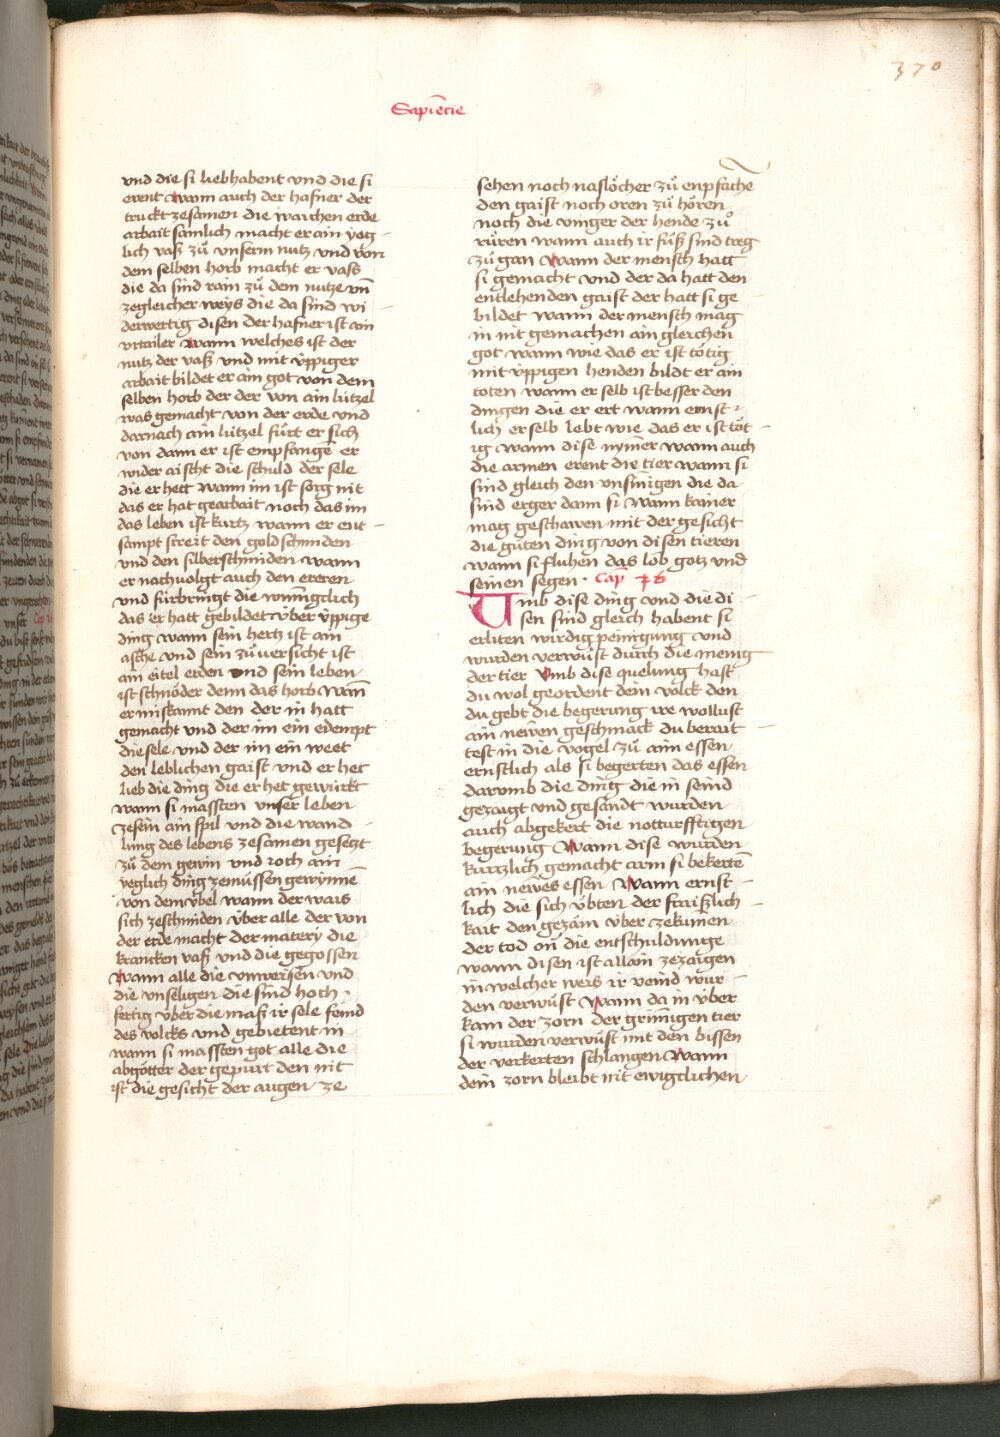 370
Sapiēcie
vnd die si liebhabent vnd die si
erent Wann auch der hafner der
truckt zesamen die waichen erde
arbaitsamlich macht er ain yeg
lich vaß zů vnserm nutz vnd von
dem selben horb macht er vass
die da sind rain zů dem nutze vn̄
zegleicher weys die da sind wi
derwertig disen der hafner ist ain
vrtailer Wann welches ist der
nutz der vaß vnd mit v̈ppiger
arbait bildet er ain got von dem
selben horb der der von ain lützel
was gemacht von der erde vnd
darnach ain lützel fürt er sich
von dann er ist empfangē er
wider aischt die schuld der sele
die er hett wann im ist sorg nit
das er hat gearbait noch das im
das leben ist kurtz wann er ent
sampt streit den goldschmiden
vnd den silberschmiden wann
er nachuolgt auch den ereren
vnd fürbringt die winnigclich
das er hatt gebildet v̈ber v̈ppige
ding wann sein hertz ist ain
asche vnd sein zůuersicht ist
ain eitel erden vnd sein leben
ist schnöder denn das horb Wan̄
er miskannt den der in hatt
gemacht vnd der im ein edempt
die sele vnd der im ein weet
den leblichen gaist vnd er het
lieb die ding die er het gewürkt
wann si massten vnser leben
zesein ain spil vnd die wand
lung des lebens zesamen gesetzt
zů dem gewin vnd ioch ain
yeglich ding zemüssen gewynnē
von dem v̈bel wann der wais
sich zeschmiden v̈ber alle der von
der erde macht der matery die
krancken vaß vnd die gegossen
Wann alle die vnweisen vnd
die vnseligen die sind hoch
fertig v̈ber die maß ir sele feind
des volcks vnd gebietent in
wann si massten got alle die
abgötter der gepurt den nit
ist die gesicht der augen ze
sehen noch naslöcher zů enpfachē
den gaist noch oren zů hören
noch die vinger der hende zů
rüren wann auch ir füß sind treg
zů gan Wann der mensch hatt
si gemacht vnd der da hatt den
entlehenden gaist der hatt si ge
bildet wann der mensch mag
im nit gemachen ain gleichen
got wann wie das er ist tötig
mit v̈ppigen henden bildt er ain
toten wann er selb ist besser den
dingen die er ert wann ernst
lich er selb lebt wie das er ist töt
ig wann dise nymer wann auch
die armen erent die tier wann si
sind gleich den vnsinnigen die da
sind erger dann si Wann kainer
mag geschawen mit der gesicht
die gůten ding von disen tieren
wann si fluhen das lob gotz vnd
seinen segen · Cap̄ 16
Vmb dise ding vnd die di
sen sind gleich habent si
erliten wirdig peinigung vnd
wurden verwüst durch die menig
der tier Vmb dise quelung hast
du wol geordent dein volck den
du gebt die begerung ire wollust
ain newen geschmack du berait
test in die vogel zů aim essen
ernstlich als si begerten das essen
darumb die ding die in seind
gezaigt vnd gesandt wurden
auch abgekert die notturfftigen
begerung Wann dise wurden
kurtzlich gemacht arm si bekertē
ain newes essen Wann ernst
lich die sich v̈bten der fraißlich
kait den gezam v̈ber zekumen
der tod on die entschuldunge
wann disen ist allain zezaigen
in welcher weis ir veind wur
den verwüst Wann da in v̈ber
kam der zorn der grim̄igen tier
si wurden verwüst mit den bissen
der verkerten schlangen Wann
dein zorn bleibt nit ewigclichen